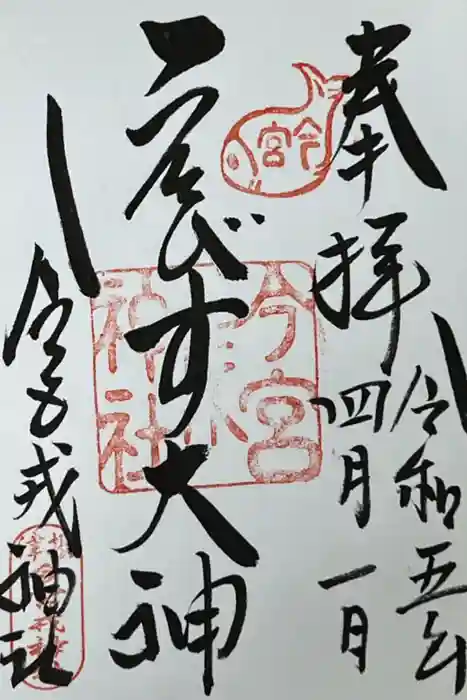 奉拝
令和五年
四月一日
今宮
ゑびす大神
今宮戎神社
今宮戎神社